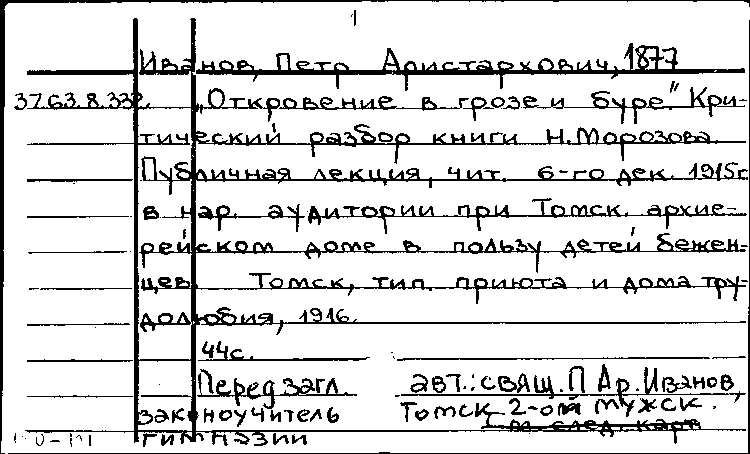 1
Иванов, Петр Аристархович, 1877
37.63.8.332. „Откровение в грозе и буре." Кри-
тический разбор книги Н.Морозова.
Публичная лекция, чит. 6-го дек. 1915г
в нар. аудитории при Томск. архие-
рейском доме в пользу детей бежен-
цев. Томск, тип. приюта и дома тру-
долюбия, 1916.
44с.
Перед загл. авт.: свящ. П Ар. Иванов,
законоучитель Томск 2-ой мужск.
гимназии